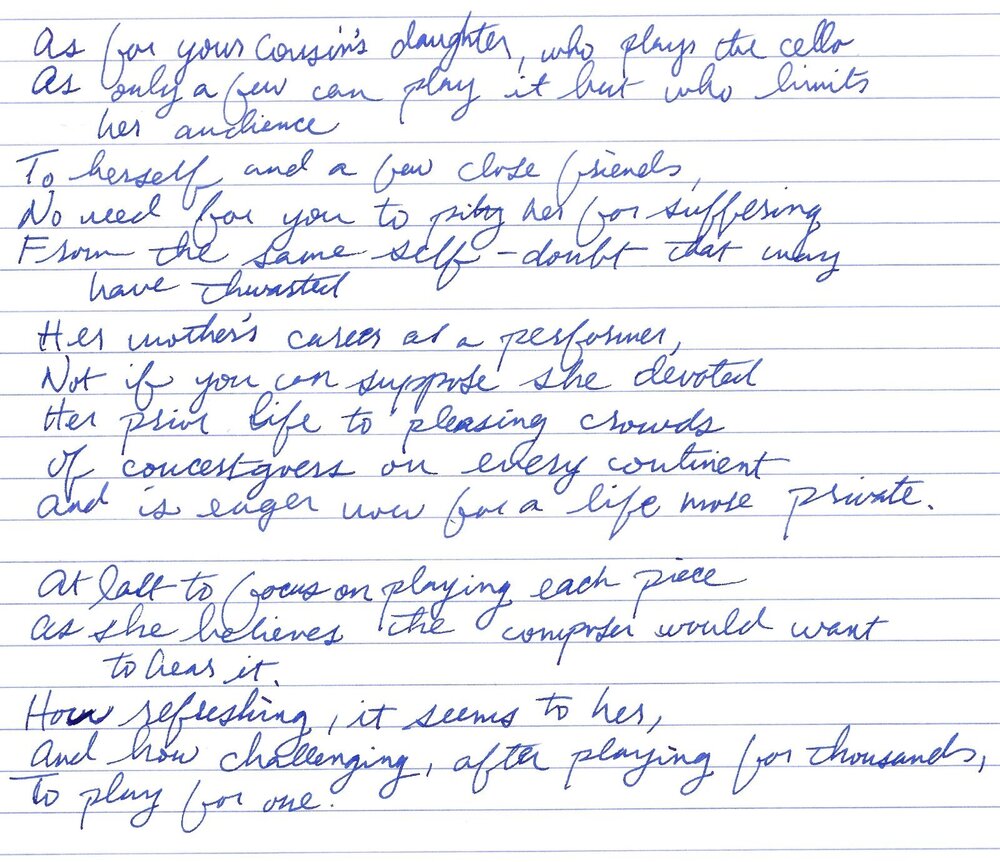 As for your cousin's daughter, who plays the cello
As only a few can play it but who limits
her audience
To herself and a few close friends,
No need for you to pity her for suffering
From the same self-doubt that may
have thwarted
Her mother's career as a performer,
Not if you can suppose she devoted
Her prior life to pleasing crowds
Of concertgoers on every continent
And is eager now for a life more private.
At last to focus on playing each piece
As she believes the composer would want
to hear it.
How refreshing, it seems to her,
And how challenging, after playing for thousands,
To play for one.